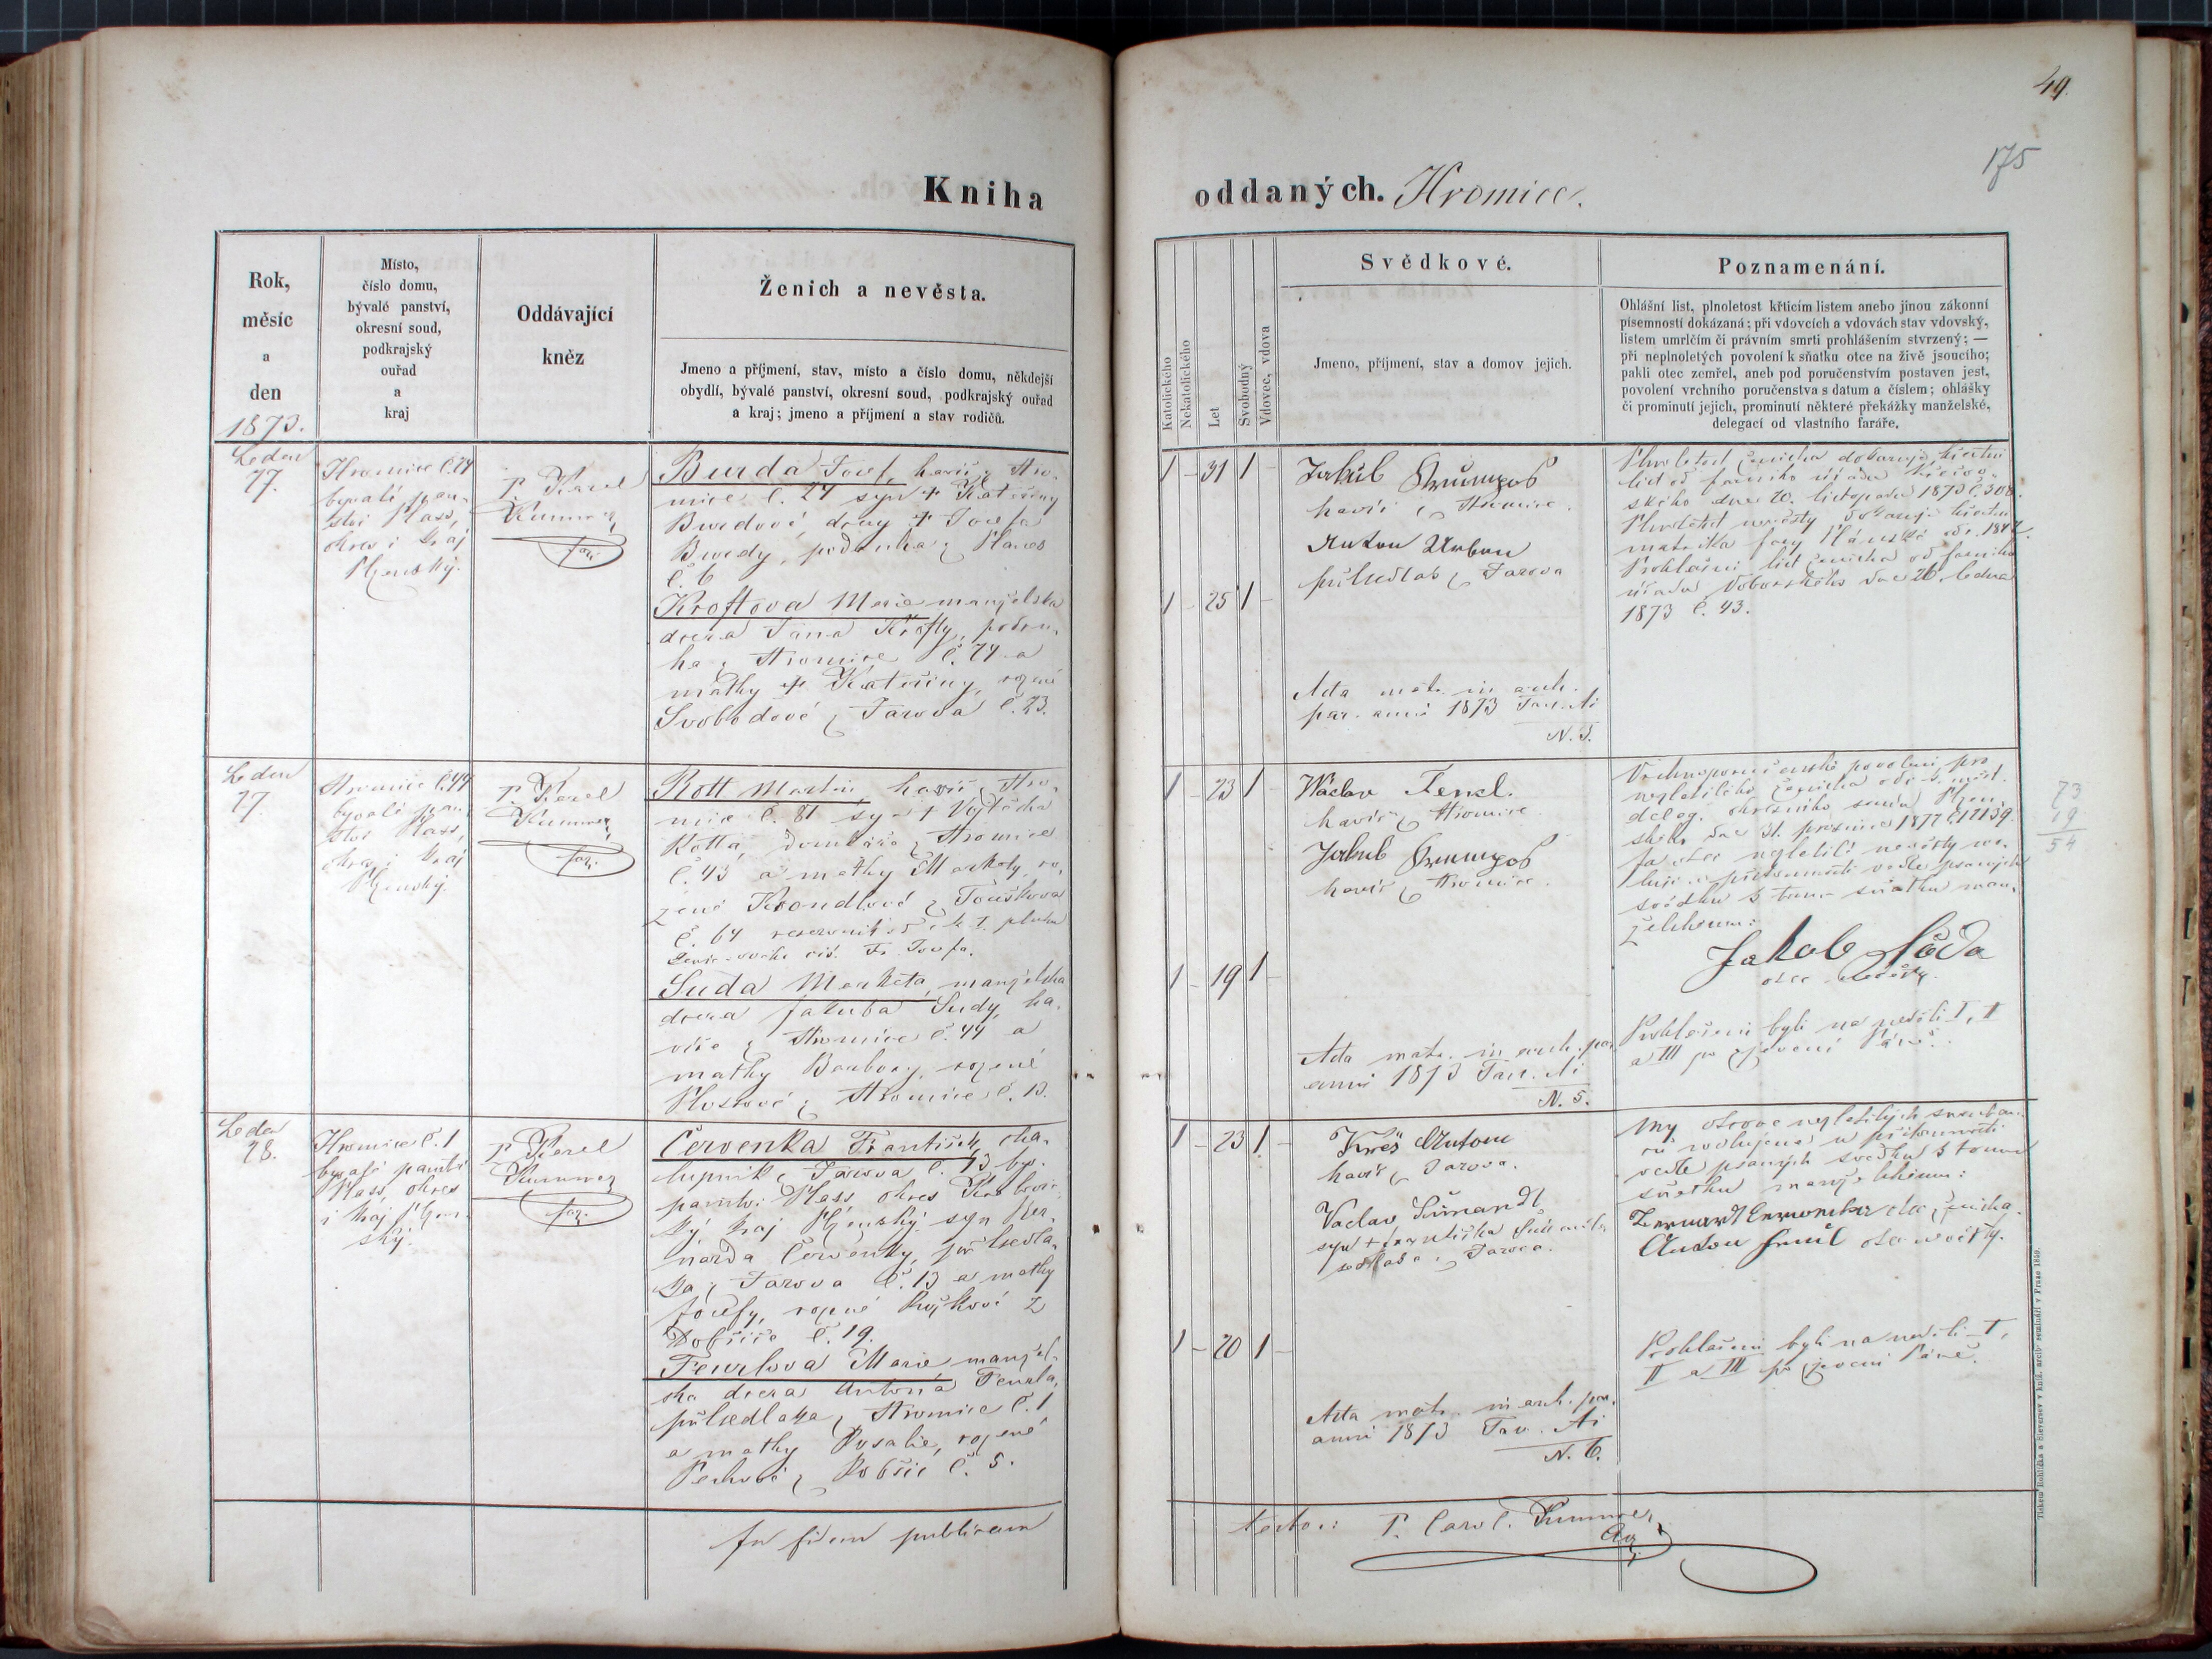 49
175
Kniha
oddaných. Hromice.
Rok,
měsíc
a
den
1873.
Místo,
číslo domu,
bývalé panství,
okresní soud,
podkrajský
ouřad
a
kraj
Oddávající
kněz
Ženich a nevěsta.
Jmeno a příjmení, stav, místo a číslo domu, někdejší
obydlí, bývalé panství, okresní soud, podkrajský ouřad
a kraj; jmeno a příjmení a stav rodičů.
Katolického
Nekatolického
Let
Svobodný
Vdovec, vdova
Svědkové.
Jmeno, příjmení, stav a domov jejich.
Poznamenání.
Ohlášní list, plnoletost křticím listem anebo jinou zákonní
písemností dokázaná; při vdovcích a vdovách stav vdovský,
listem umrlčím či právním smrti prohlášením stvrzený; —
při neplnoletých povolení k sňatku otce na živě jsoucího;
pakli otec zemřel, aneb pod poručenstvím postaven jest,
povolení vrchního poručenstva s datum a číslem; ohlášky
či prominutí jejich, prominutí některé překážky manželské,
delegací od vlastního faráře.
Leden
27.
Hromice č. 24
bývalé pan-
ství Plass,
okres i kraj
Plzenský.
P. Karel
Kummer,
far.
Burda Josef, havíř z Hro-
mice č. 24 syn † Kateřiny
Burdové, dcery † Josefa
Burdy, podruha z Planes
č. 6
Kroftova Marie manželska
dcera Jana Krofty, podru-
ha z Hromice č. 74 a
matky † Kateřiny, rozené
Svobodové z Jarova č. 23.
1 - 31 1 -
1 - 25 1 -
Jakub
havíř z Hromice.
Anton Urban
půlsedlák z Jarova
Acta matr. in arch.
par. anni 1873
N. 5.
Plnoletost ženicha dokazuje křestní
list od farního úřadu
ského dne 20. listopadu 1873 č. 308.
Plnoletost nevěsty dokazuje křestní
matrika fary
Prohlašní list ženicha od farního
úřadu dne 26. ledna
1873 č. 43.
Leden
27.
Hromice č. 44
bývalé pan-
ství Plass,
okres i kraj
Plzenský.
P. Karel
Kummer,
far.
Rott Martin havíř z Hro-
mice č. 81 syn † Vojtěcha
Rotta, domkáře z Hromice
č. 43 a matky Markety, ro-
zené Krondlové z Touškova
č. 64
Fr. Josefa.
Suda Marketa, manželska
dcera Jakuba Sudy, ha-
víře z Hromice č. 44 a
matky Barbory, rozené
z Hromice č. 13.
1 - 23 1 -
1 - 19 1 -
Václav Fenzl.
havíř z Hromice.
Jakub
havíř z Hromice.
Acta matr. in arch. par.
anni 1873
N. 5.
Vrchnoporučenské povolení pro
nezletilého ženicha od c. k. měst.
deleg. okresního soudu Plzen-
ského dne 31. prosince
Ja otec nezletilé nevěsty svo-
luji v přítomnosti vedle psaných
svědků k tomu sňatku man-
želskému:
Jakob Sůda
otec nevěsty.
Prohlašeni byli na neděli I, II
a III po zjevení Páně.
73
19
54
Leden
28.
Hromice č. 1
bývalé panství
Plass, okres
i kraj Plzen-
ský.
P. Karel
Kummer,
far.
Červenka František, cha-
lupník z Jarova č. 13 býv.
panství Plass, okres
ký kraj Plzenský syn Ber-
narda Červenky, půlsedlá-
ka z Jarova č. 13 a matky
Josefy, rozené z
Dobříče č. 19.
Feurlova Marie manžel-
ska dcera Antona Feurla,
půlsedláka z Hromice č. 1
a matky Rosalie, rozené
Pechové z Dobříč č. 5.
1 - 23 1 -
1 - 20 1 -
Kreš Antonn
havíř z Jarova.
Vaclav Šimandl
syn † Františka
sedláka z Jarova.
Acta matr. in arch. par.
anni 1873
N. 6.
My otcove nezletilých snouben-
ců svolujeme v přítomnosti
vedle psaných svědků k tomu
sňatku manželskému:
otec ženicha.
Anton otec nevěsty.
Prohlašeni byli na neděli I,
II a III po zjevení Páně.
In fidem publicam
testor: P. Carol. Kummer,
Tiskem Rohlíčka a Sieversev v kníž. arcib. semináři v Praze 1859.